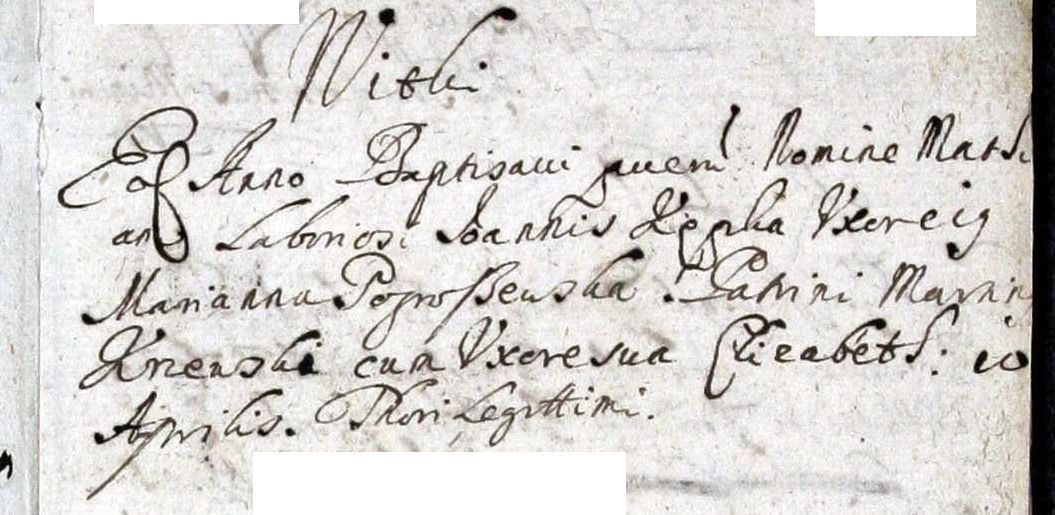 Witki
Eod Anno Baptisavi puerum Nomine Mathi
am Laboriosi Joannis Kępka Uxor eig
Marianna Pogroßewska Patrini Martin
Krzewski cum Uxore sua Elizabeth: 10
Aprilis. Thori Legittimi.